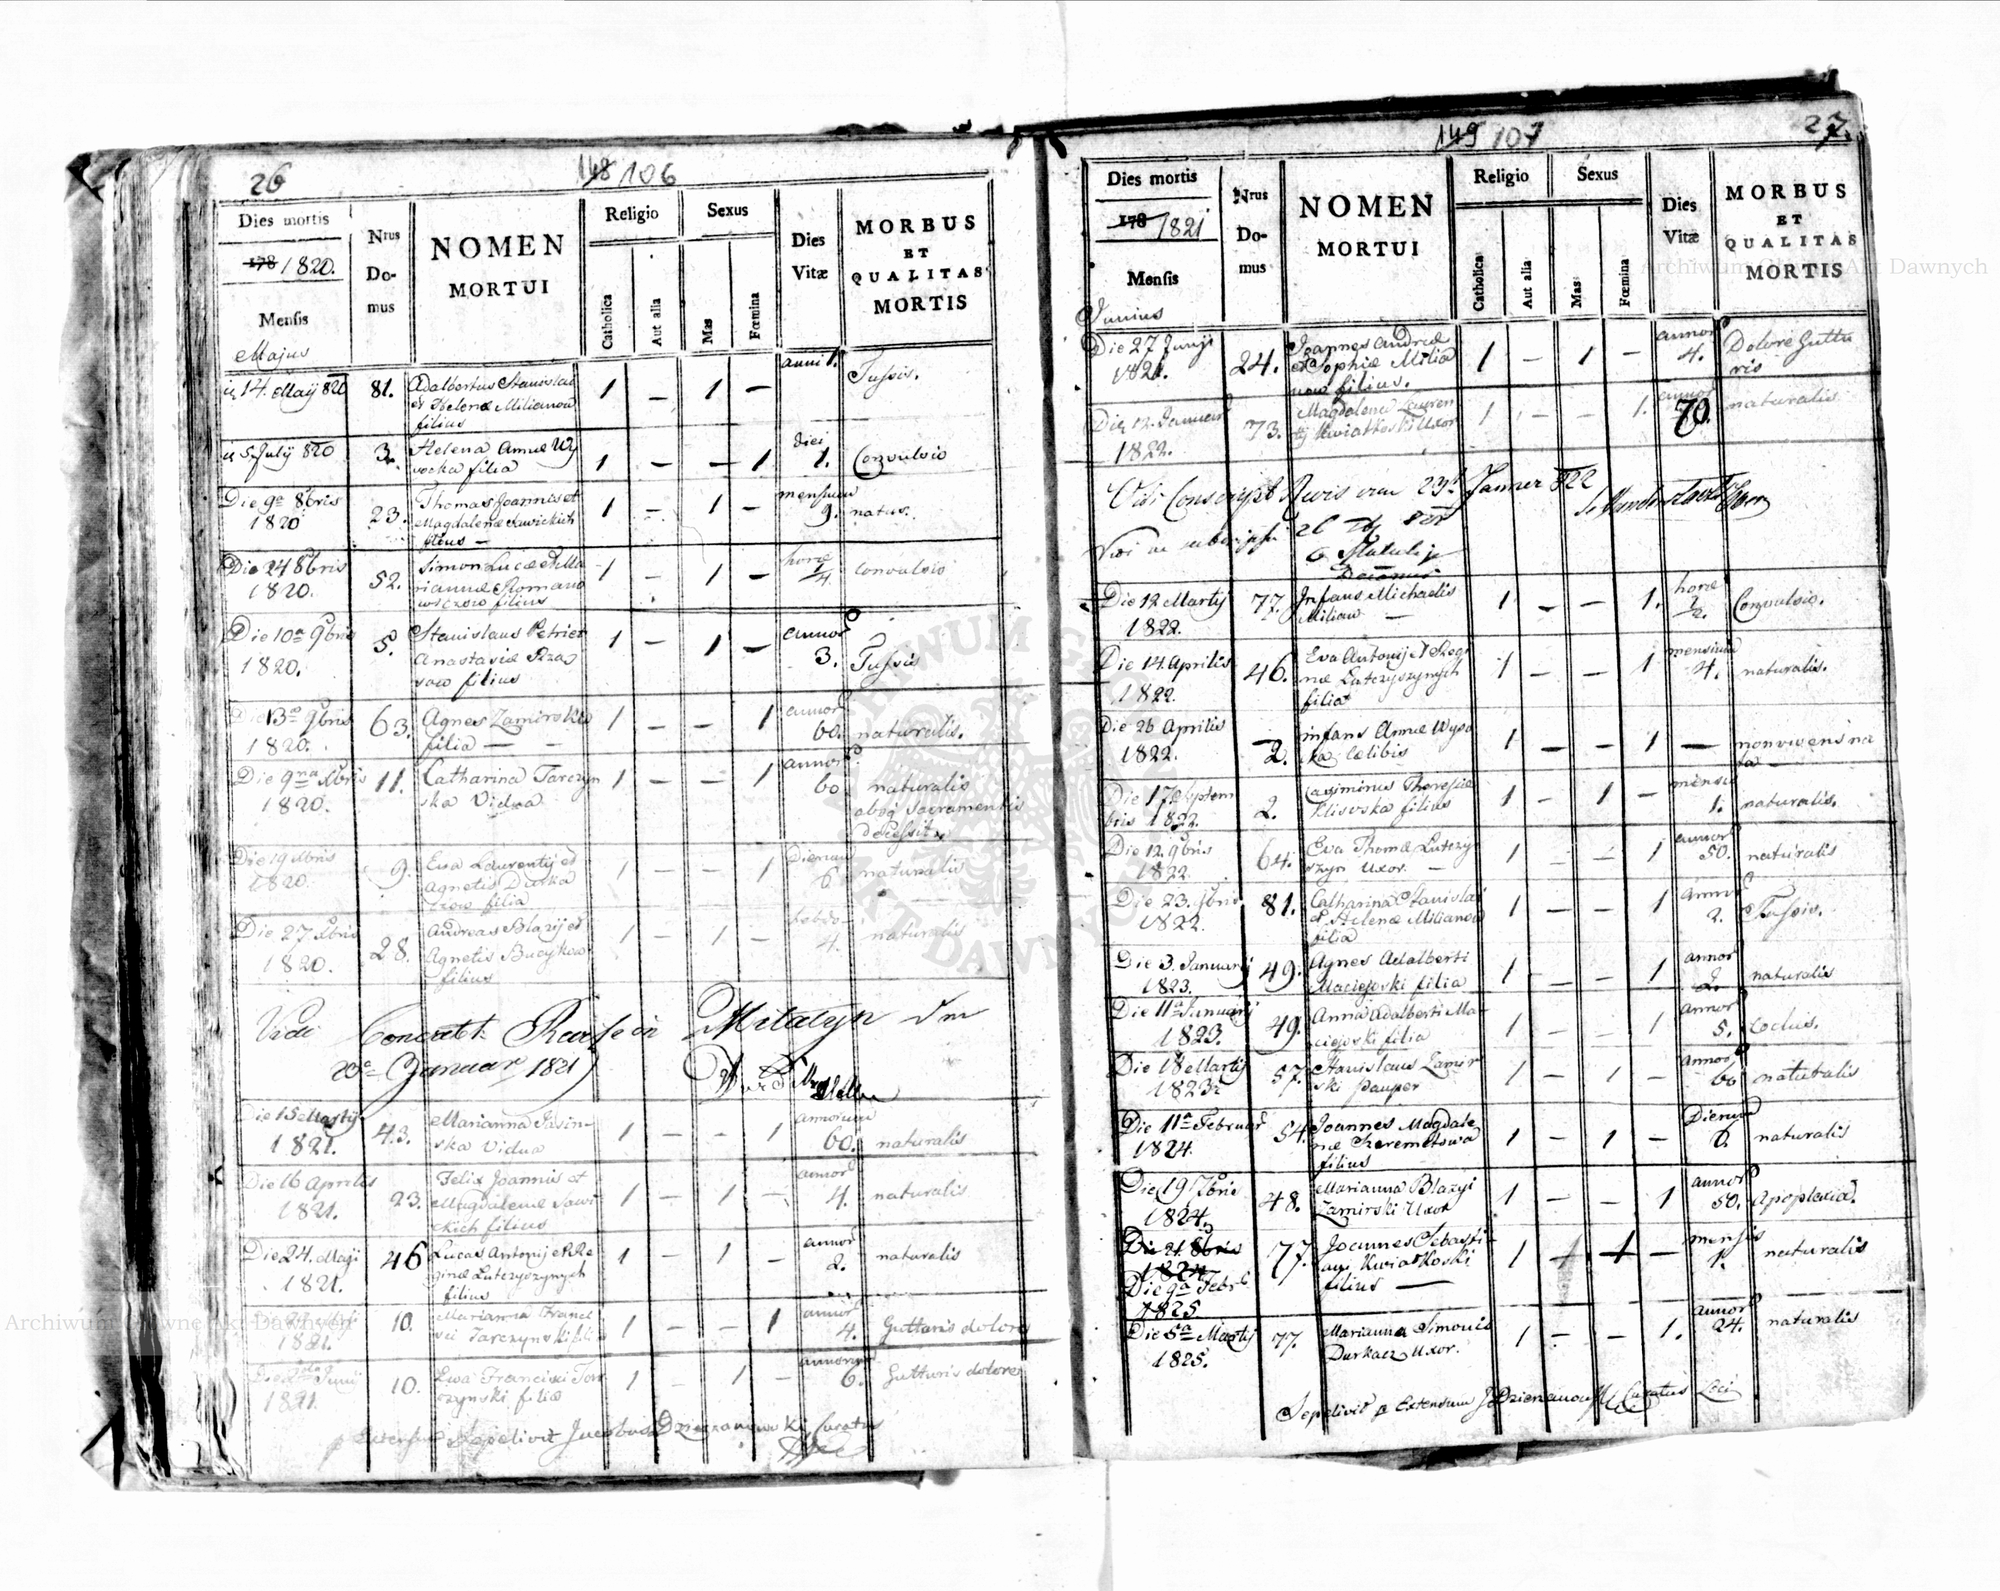 26
148 106
Dies mortis
178 1820.
Mensis
Majus
Nrus
Do-
mus
NOMEN
MORTUI
Religio
Catholica
Aut alia
Sexus
Mas
Fœmina
Dies
Vitæ
MORBUS
ET
QUALITAS
MORTIS
14. Maij 820 81. Adalbertus Stanislai 1 — 1 — anni 1. Tussis.
et Helenæ Milianow
filius
5. July 820 3. Helena Annæ Wy 1 — — 1 diei 1. Convulsio
socka filia
Die 9a 8bris 23. Thomas Joannis et 1 — 1 — mensium 9. natur.
1820 Magdalenæ Sawickich
filius —
Die 24 8bris 52. Simon Lucæ et Ma 1 — 1 — horæ 1/4 convulsio
1820. riannæ Romano
wiczow filius
Die 10a 9bris 5. Stanislaus Petri et 1 — 1 — annor 3. Tussis
1820. Anastasiæ Rzas
sow filius
Die 13a 9bris 63. Agnes Zamirska 1 — — 1 annor 60. naturalis.
1820. filia — —
Die 9na Xbris 11. Catharina Tarczyn 1 — — 1 annor 60 naturalis
1820. ska Vidua
absq Sacramentis
Decessit
Die 19 Xbris 9. Eva Laurentij et 1 — — 1 Dierum 6 naturalis
1820. Agnetis Durka
czow filia
Die 27 Xbris 28. Andreas Blazij et 1 — 1 — hebdo- 4. naturalis
1820. Agnetis Bucykow
filius
Vidi Concreta Revision Milatyn dm
23 Januar 1821
Die 15 Martij 43. Marianna Jasin- 1 — — 1 annorum 60. naturalis
1821. ska Vidua
Die 16 Aprilis 23. Felix Joannis et 1 — 1 — annor 4. naturalis
1821. Magdalenæ Sawi
ckich filius
Die 24. Maji 46 Lucas Antonij et Re 1 — 1 — annor 2. naturalis
1821. ginæ Lutczyszynych
filius
10. Marianna Franci 1 — — 1 annor 4. Gutturis dolore
1821. sci Tarczynski filia
Junij 10. Ewa Francisci Tar 1 — 1 — annorum 6. Gutturis dolore
1821. czynski filia
Extensum Sepelivit Jacobus Dzierzanowski Curatus
27.
149 107
Dies mortis
178 1821
Mensis
Junius
Nrus
Do-
mus
NOMEN
MORTUI
Religio
Catholica
Aut alia
Sexus
Mas
Fœmina
Dies
Vitæ
MORBUS
ET
QUALITAS
MORTIS
Die 27 Junji 24. Joannes Andreæ 1 — 1 — annor 4. Dolore Guttu
1821. et Sophiæ Milia ris
now filius.
Die 12. Januar 73. Magdalena Lauren 1 — — 1. annor 70. naturalis
1822. tij Kwiatkoski Uxor
Vidi Conscript Revis am 23t Janner 822
Vidi ac subscripsi
Decanus
Die 12 Martij 77. Infans Michaelis 1 — — 1. horæ 1/2. Convulsio.
1822. Milian —
Die 14. Aprilis 46. Eva Antonij et Regi 1 — — 1 mensium 4. naturalis.
1822. næ Lutczyszynych
filia
Die 26 Aprilis 2. infans Annæ Wyso 1 — — 1 — nonvivens na
1822. cka Cælibis ta —
Die 17 Septem 2. Casimirus Theresiæ 1 — 1 — mensis 1. naturalis.
bris 1822. Klisoska filius
Die 12. 9bris 64. Eva Thomæ Lutczy 1 — — 1 annor 50. naturalis
1822. szyn Uxor. —
Die 23. 9bris 81. Catharina Stanislai 1 — — 1 annor 2. Tussis.
1822. et Helenæ Milianow
filia
Die 3. Januarij 49. Agnes Adalberti 1 — — 1 annor 2. naturalis
1823. Maciejoski filia
Die 11a Januarij 49. Anna Adalberti Ma- 1 — — 1 annor 5. eodus.
1823. ciejoski filia
Die 18 Martij 57. Stanislaus Zamir 1 — 1 — annor 60 naturalis
1823. ski pauper
Die 11a Februar 54. Joannes Magdale 1 — 1 — Dierum 6. naturalis
1824. næ Szeremetowa
filius
Die 19 7bris 48. Marianna Blazyi 1 — — 1 annor 50. Apoplexia.
1824. Zamirski Uxor
Die 21. 8bris 77. Joannes Sebasti- 1 — 1 — mensis 1. naturalis
1824 ani Kwiatkoski
Die 9a Febr filius —
1825
Die 5a Martij 77. Marianna Simonis 1 — — 1. annor 24. naturalis
1825. Durkacz Uxor.
Sepelivit & Extensum J. Dzierzanowski Curatus Loci
ARCHIWUM GŁÓWNE AKT DAWNYCH
Archiwum Główne Akt Dawnych
Archiwum Główne Akt Dawnych